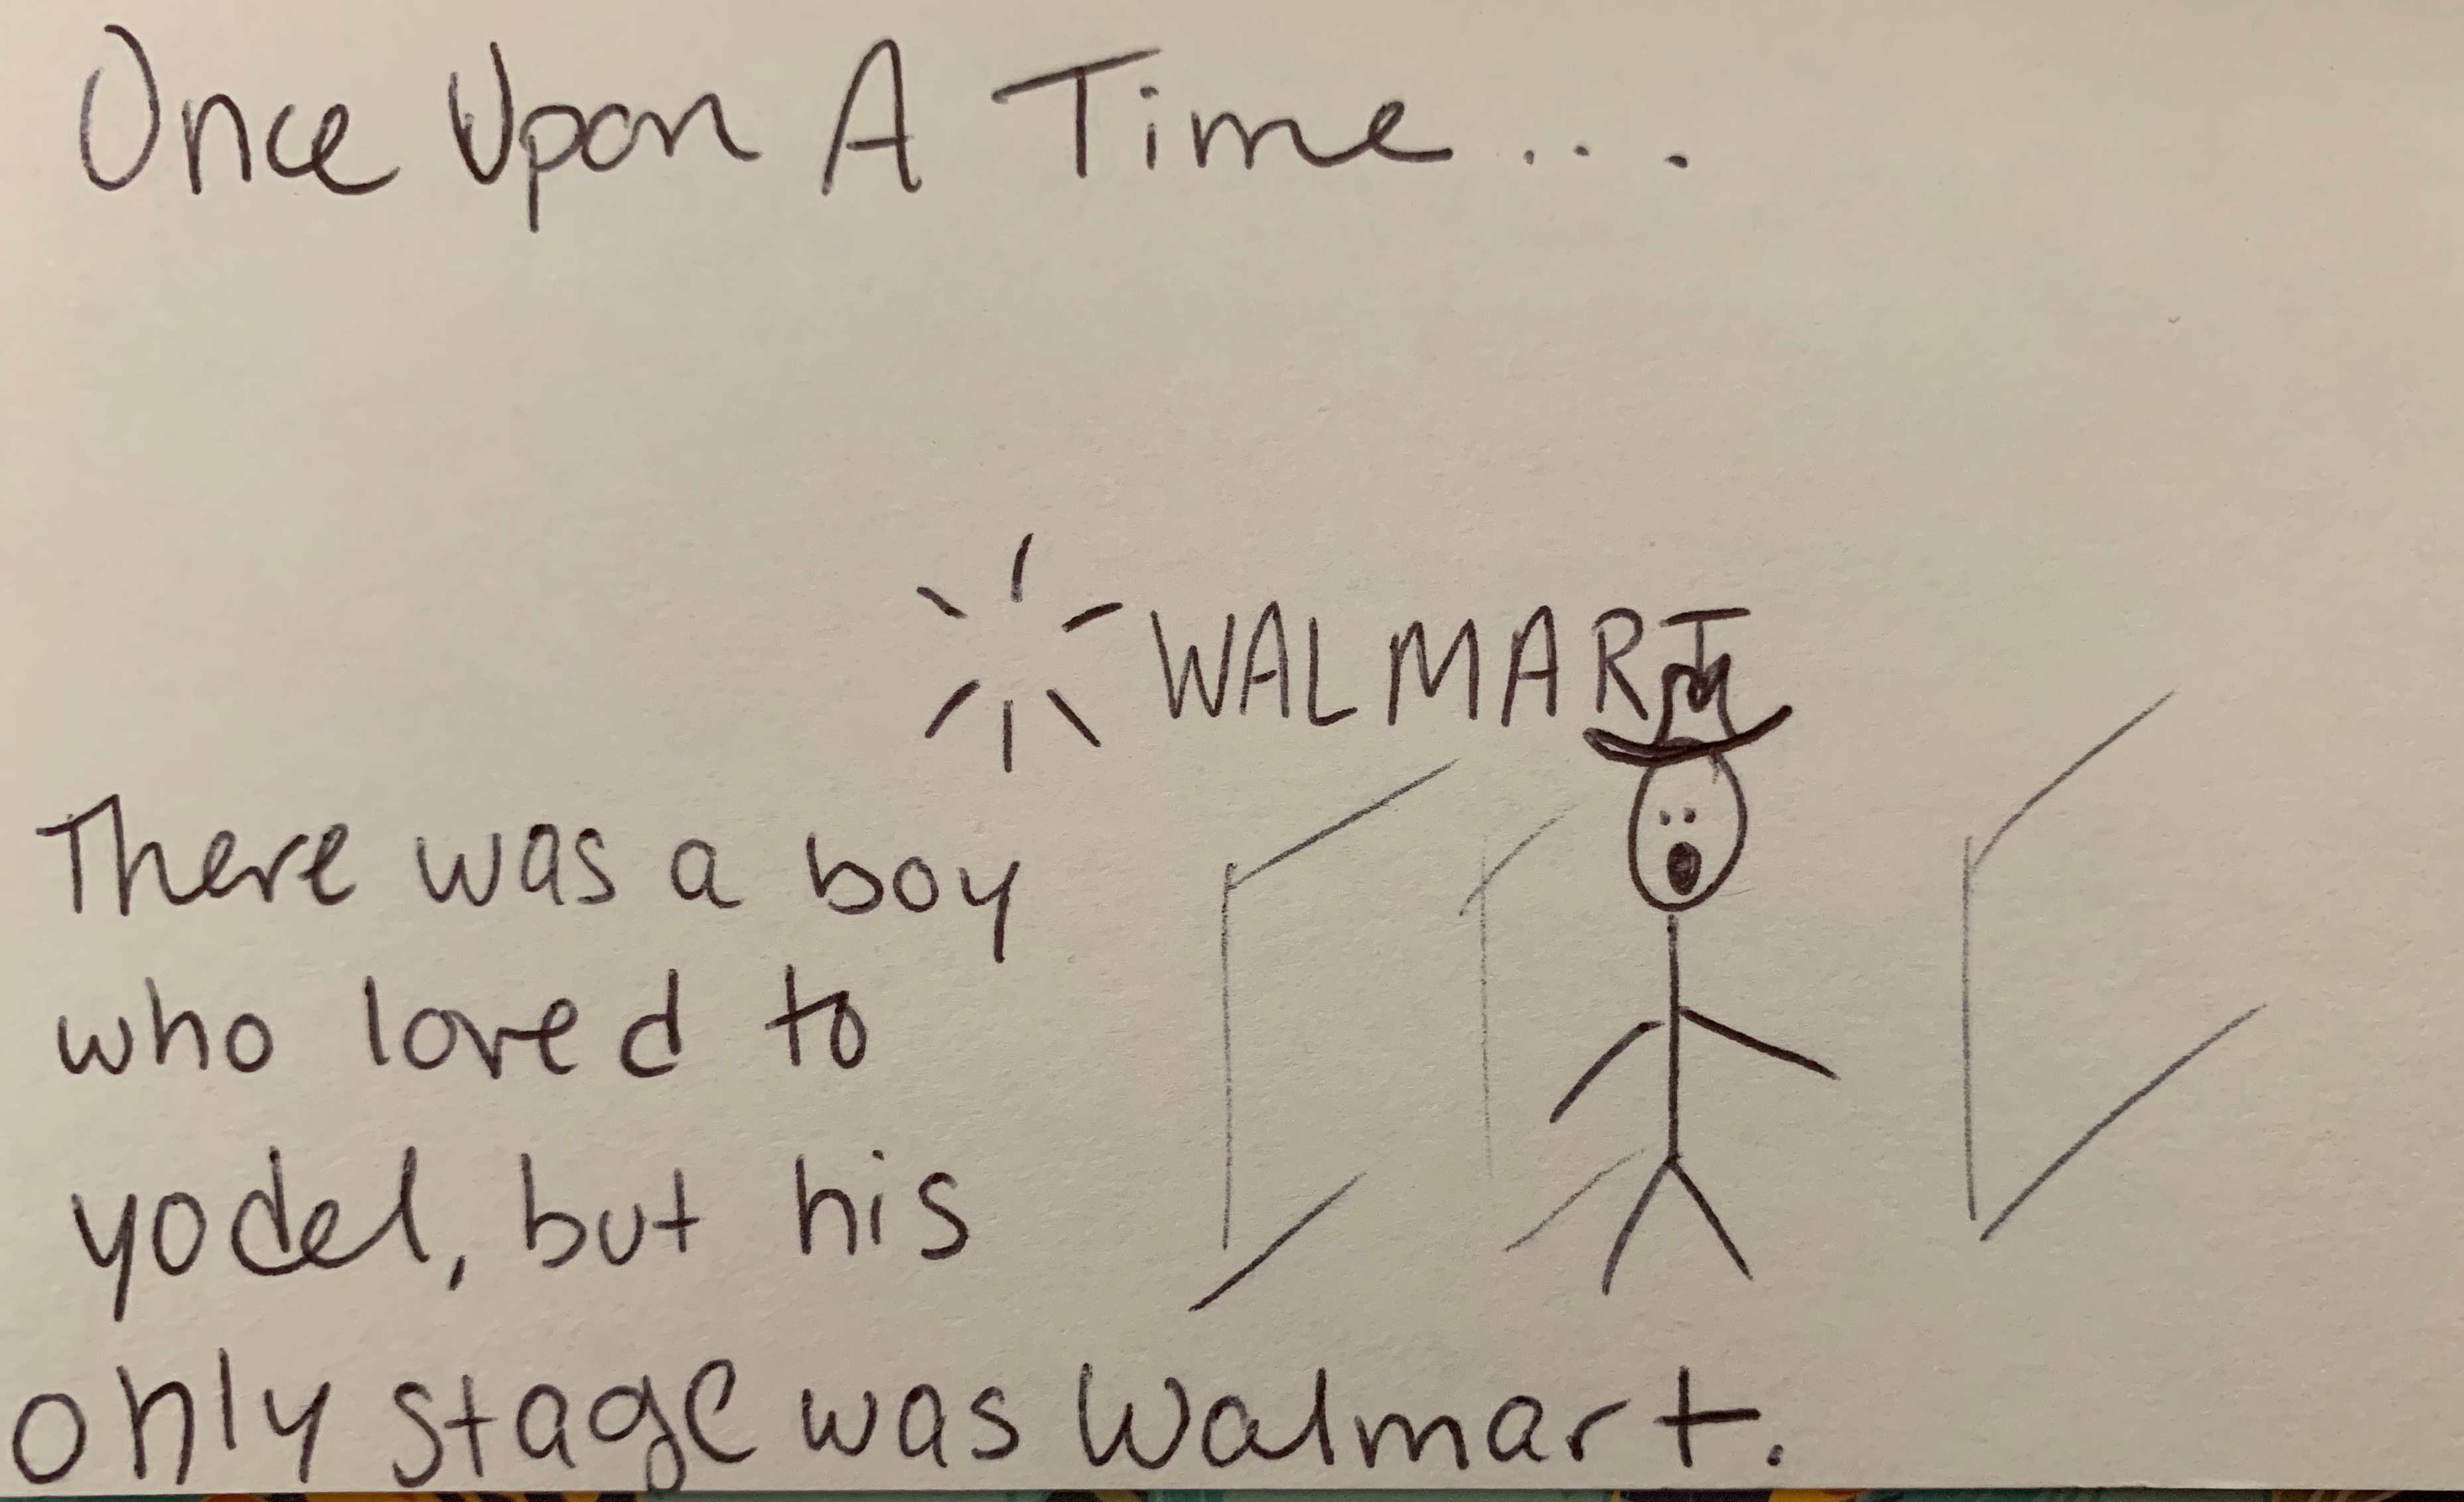 Once Upon A Time...
WALMART
There was a boy
who loved to
yodel, but his
only stage was Walmart.